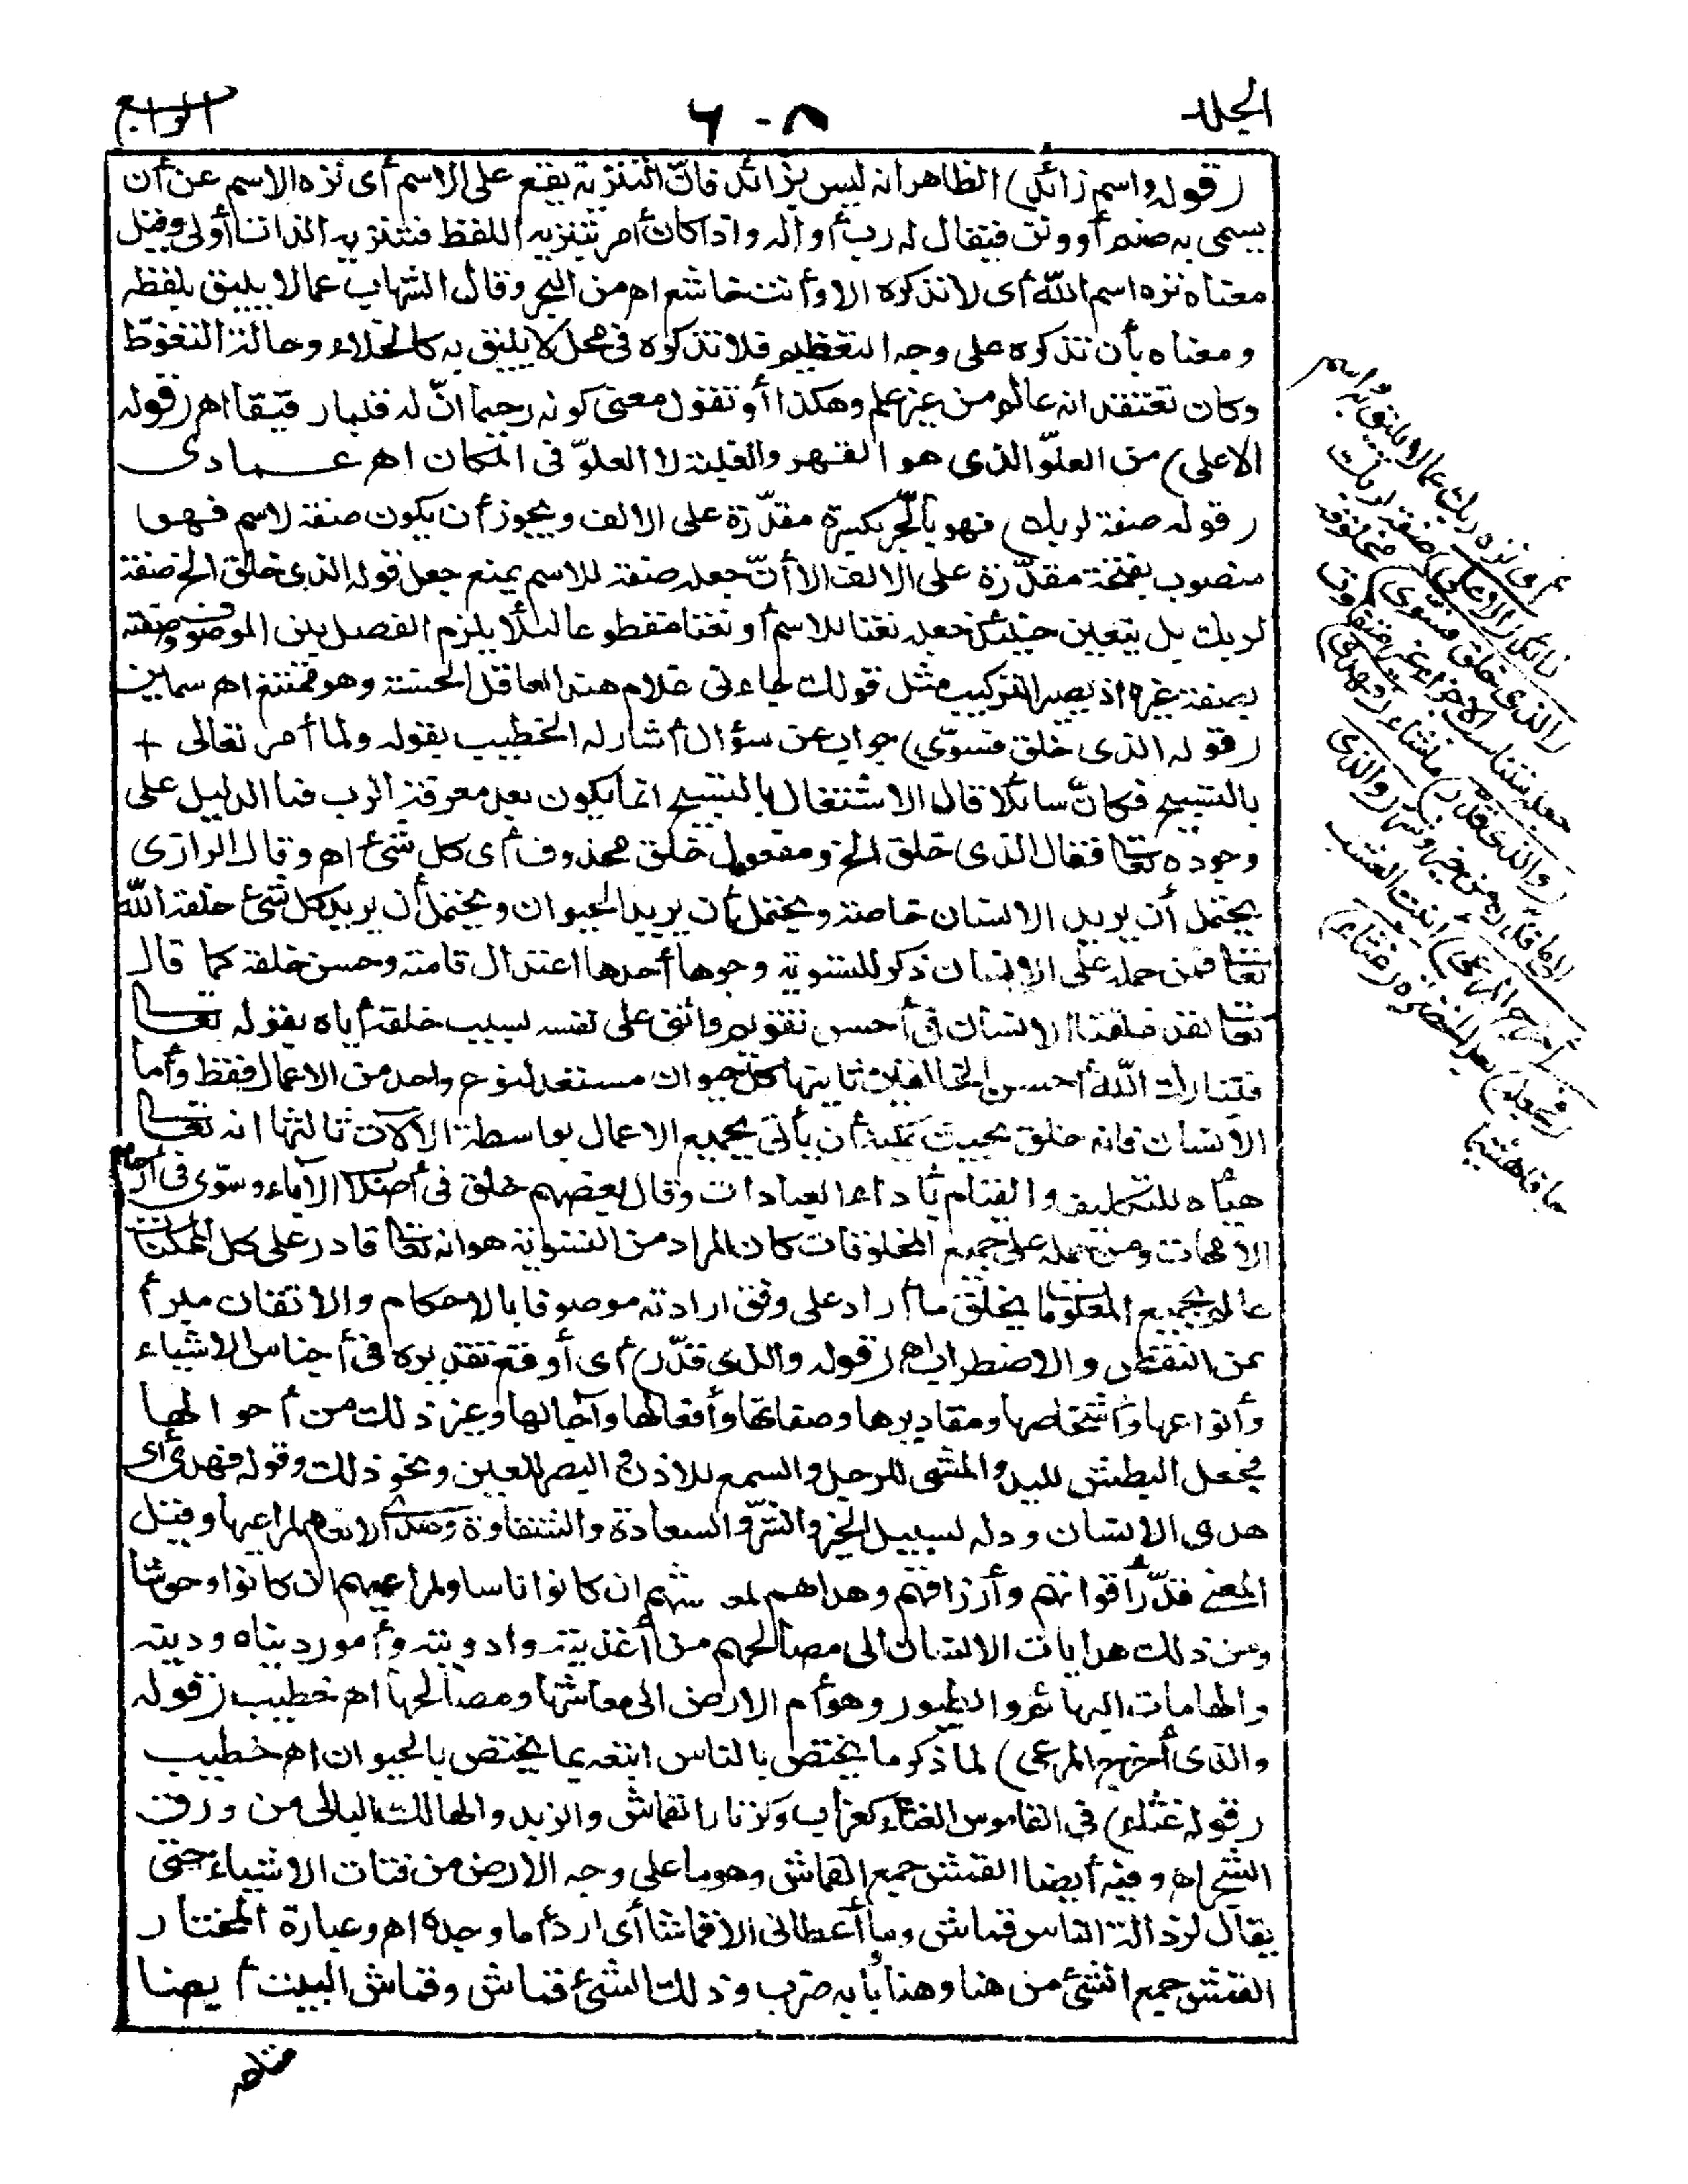 الجلد
٦٠٨
الرابع
(قوله واسم زائد) الظاهر انه ليس بزائد فانّ التنزيه يقع على الاسم أى نزه الاسم عن أن
يسمى به صنم أو وثن فيقال له رب أو اله واذا كان أمر بتنزيه اللفظ فتنزيه الذات أولى وقيل
معناه نزه اسم الله أى لا تذكره الا وأنت خاشع اهـ من البحر وقال الشهاب عما لا يليق بلفظه
ومعناه بأن تذكره على وجه التعظيم فلا تذكره فى محل لا يليق به كالخلاء وحالة التغوّط
وكان تعتقد انه عالم من غير علم وهكذا أو تقول معنى كونه رحيما انّ له قلبا رقيقا اهـ (قوله
الاعلى) من العلوّ الذى هو القهر والغلبة لا العلوّ فى المكان اهـ عمادى
(قوله صفة لربك) فهو بالجر بكسرة مقدّرة على الالف ويجوز أن يكون صفة لاسم فهو
منصوب بفتحة مقدّرة على الالف الا أنّ جعله صفة للاسم يمنع جعل قوله الذى خلق الخ صفة
لربك بل يتعين حينئذ جعله نعتا للاسم أو نعتا مقطوعا لئلا يلزم الفصل بين الموصوف وصفته
بصفة غيره اذ يصير التركيب مثل قولك جاءنى غلام هند العاقل الحسنة وهو ممتنع اهـ سمين
(قوله الذى خلق فسوّى) جواب عن سؤال أشار له الخطيب بقوله ولما أمر تعالى +
بالتسبيح فكانّ سائلا قال الاشتغال بالتسبيح انما يكون بعد معرفة الرب فما الدليل على
وجوده تعا فقال الذى خلق الخ ومفعول خلق محذوف أى كل شئ اهـ وقال الرازى
يحتمل أن يريد الانسان خاصة ويحتمل أن يريد الحيوان ويحتمل أن يريد كل شئ خلقه الله
تعا فمن حمله على الانسان ذكر للتسوية وجوها أحدها اعتدال قامته وحسن خلقه كما قال
تعا لقد خلقنا الانسان فى أحسن تقويم وأثنى على نفسه بسبب خلقه أياه بقوله تعا
فتبارك الله أحسن الخالقين ثانيها كل حيوان مستعد لنوع واحد من الاعمال فقط وأما
الانسان فانه خلق بحيث يمكنه أن يأتى بجميع الاعمال بواسطة الآلات ثالثها انه تعا
هيأه للتكليف والقيام بأداء العبادات وقال بعضهم خلق فى أصلاب الآباء وسوّى فى أرحام
الامهات ومن حمله على جميع المخلوقات كان المراد من التسوية هو انه تعا قادر على كل الممكنات
عالم بجميع المعلومات يخلق ما أراد على وفق ارادته موصوفا بالاحكام والاتقان مبرأ
عن النقص والاضطراب اهـ (قوله والذى قدّر) أى أوقع تقديره فى أجناس الاشياء
وأنواعها وأشخاصها ومقاديرها وصفاتها وأفعالها وآجالها وغير ذلك من أحوالها
فجعل البطش لليد والمشى للرجل والسمع للاذن والبصر للعين ونحو ذلك وقوله فهدى أى
هدى الانسان ودله لسبيل الخير والشرّ والسعادة والشقاوة وهدى الانعام لمراعيها وقيل
المعنى قدّر أقواتهم وأرزاقهم وهداهم لمعاشهم ان كانوا ناسا ولمراعيهم ان كانوا وحوشا
ومن ذلك هدايات الانسان الى مصالحهم من أغذيته وادويته وأمور دنياه ودينه
والهامات البهائم والطيور وهوام الارض الى معاشها ومصالحها اهـ خطيب (قوله
والذى أخرج المرعى) لما ذكر ما يختص بالناس اتبعه بما يختص بالحيوان اهـ خطيب
(قوله غثاء) فى القاموس الغثاء كغراب وكزنار القماش والزبد والهالك البالى من ورق
الشجر اهـ وفيه أيضا القمش جمع القماش وهو ما على وجه الارض من فتات الاشياء حتى
يقال لرذالة الناس قماش وما أعطانى الا قماشا أى اردأ ما وجده اهـ وعبارة المختار
القمش جمع الشئ من هنا وهنا بابه ضرب وذلك الشئ قماش وقماش البيت أيضا
أى نزه ربك عما لا يليق به واسم
زائد (الاعلى) صفة لربك
(الذى خلق فسوى) مخلوقه
جعله متناسب الاجزاء غير متفاوت
(والذى قدّر) ما شاء (فهدى)
الى ما قدّره من خير وشر (والذى
أخرج المرعى) أنبت العشب
(فجعله) بعد الخضرة (غثاء)
جافا هشيما